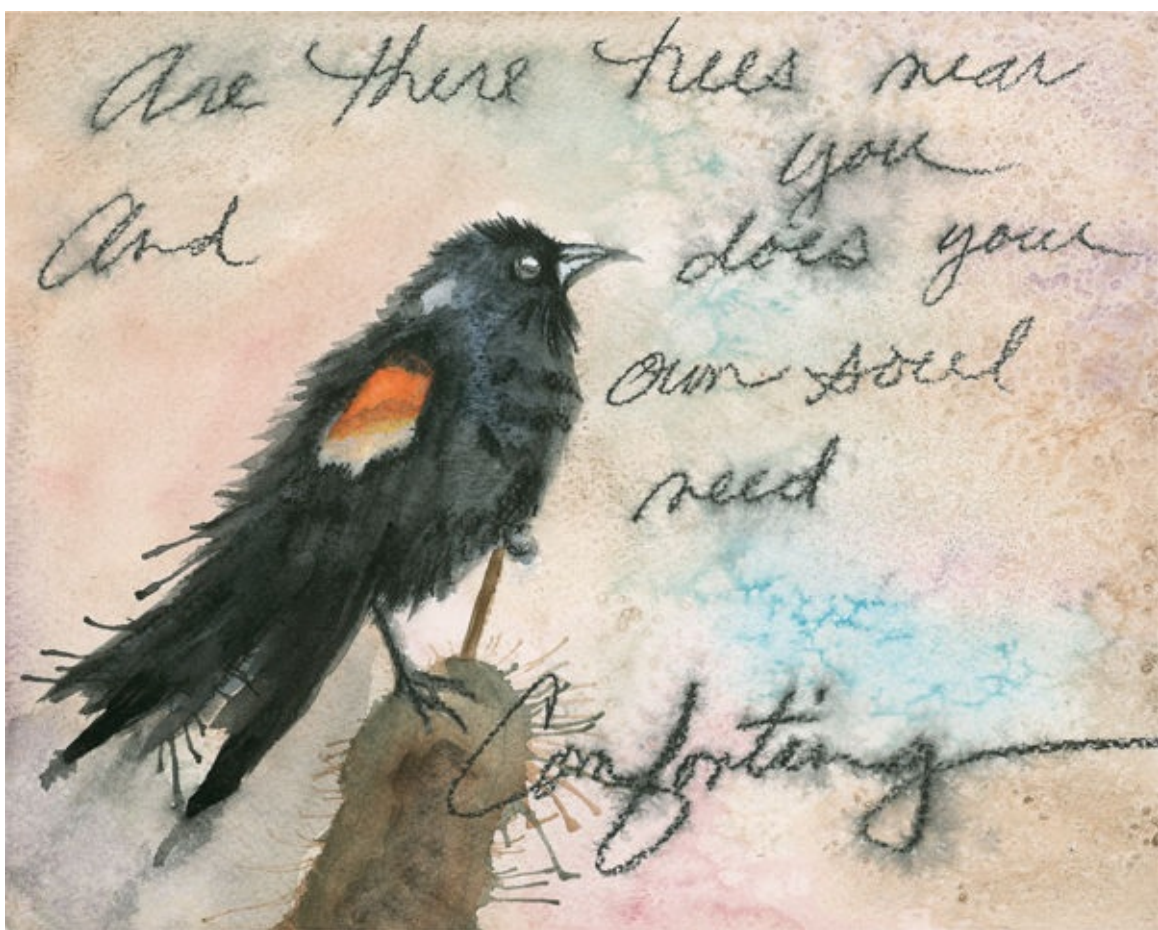 Are there trees near
you
And does your
own soul
need
Comforting